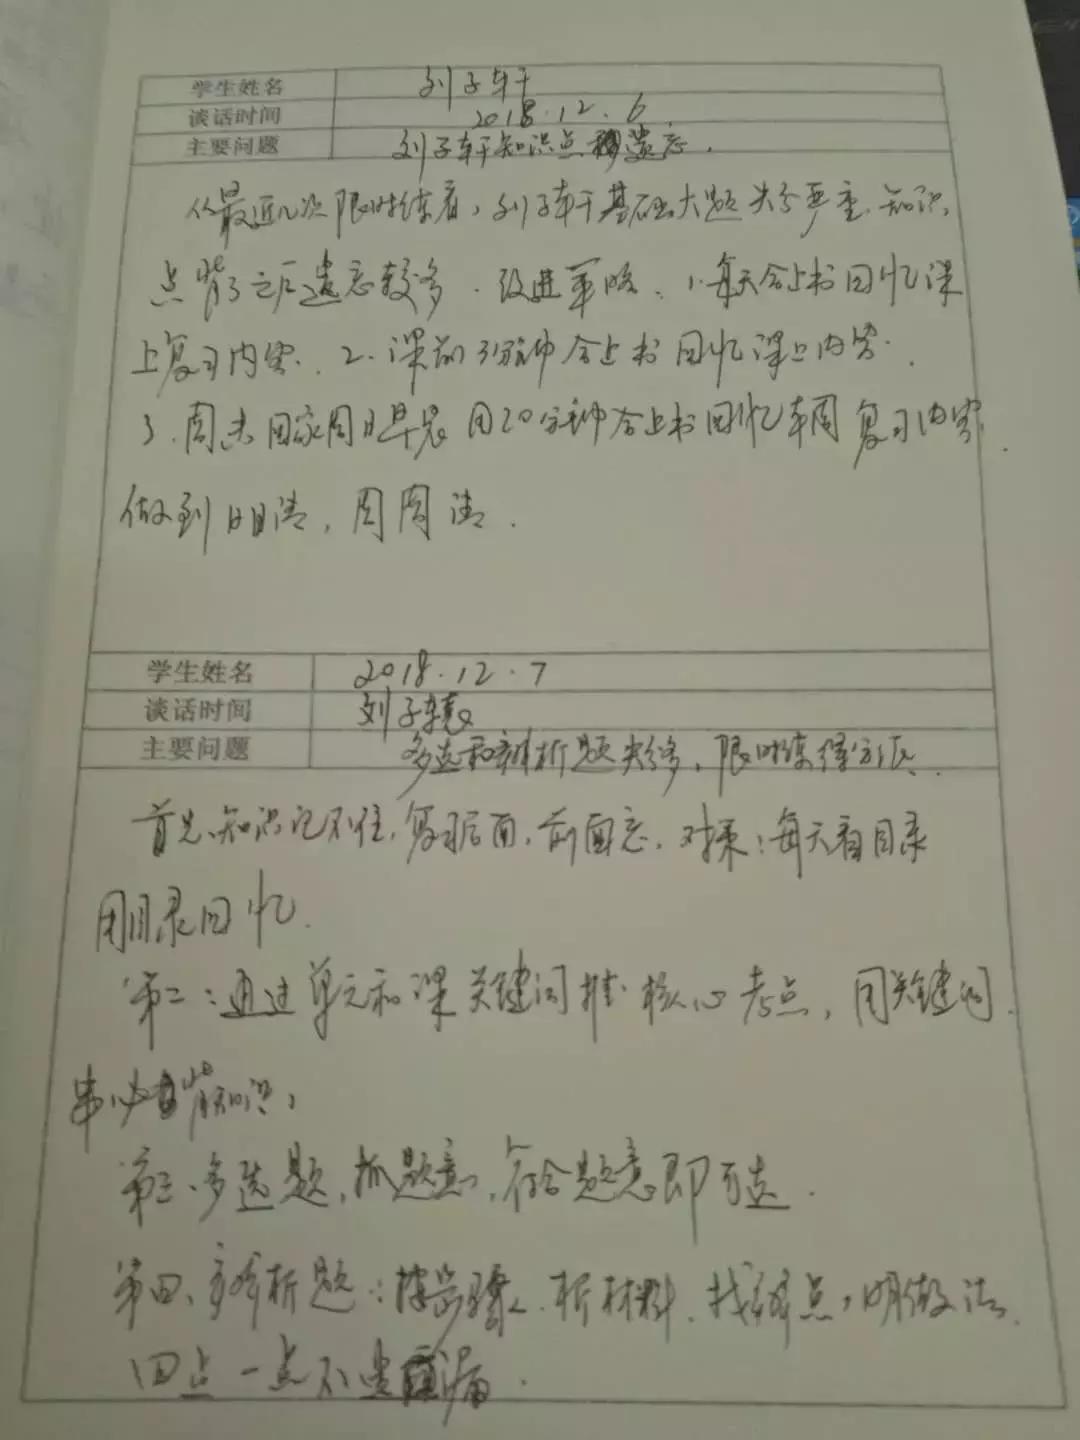 学生姓名 刘子轩
谈话时间 2018.12.6
主要问题 刘子轩知识点遗忘.
从最近几次限时练看,刘子轩基础大题失分严重.知识
点背了之后遗忘较多.改进策略、1.每天合上书回忆课
上复习内容.2.课前3分钟合上书回忆课上内容.
3.周末回家周日早晨用20分钟合上书回忆本周复习内容.
做到日日清,周周清.
学生姓名 2018.12.7
谈话时间 刘子轩
主要问题 多选和辨析题失分多,限时练得分低.
首先、知识记不住,复习后面,前面忘,对策:每天看目录
用目录回忆.
第二:通过单元和课关键词推核心考点,用关键词
串必背知识,
第三、多选题,抓题意,符合题意即可选.
第四、辨析题:按步骤、析材料、找错点,明做法.
四点一点不遗漏.